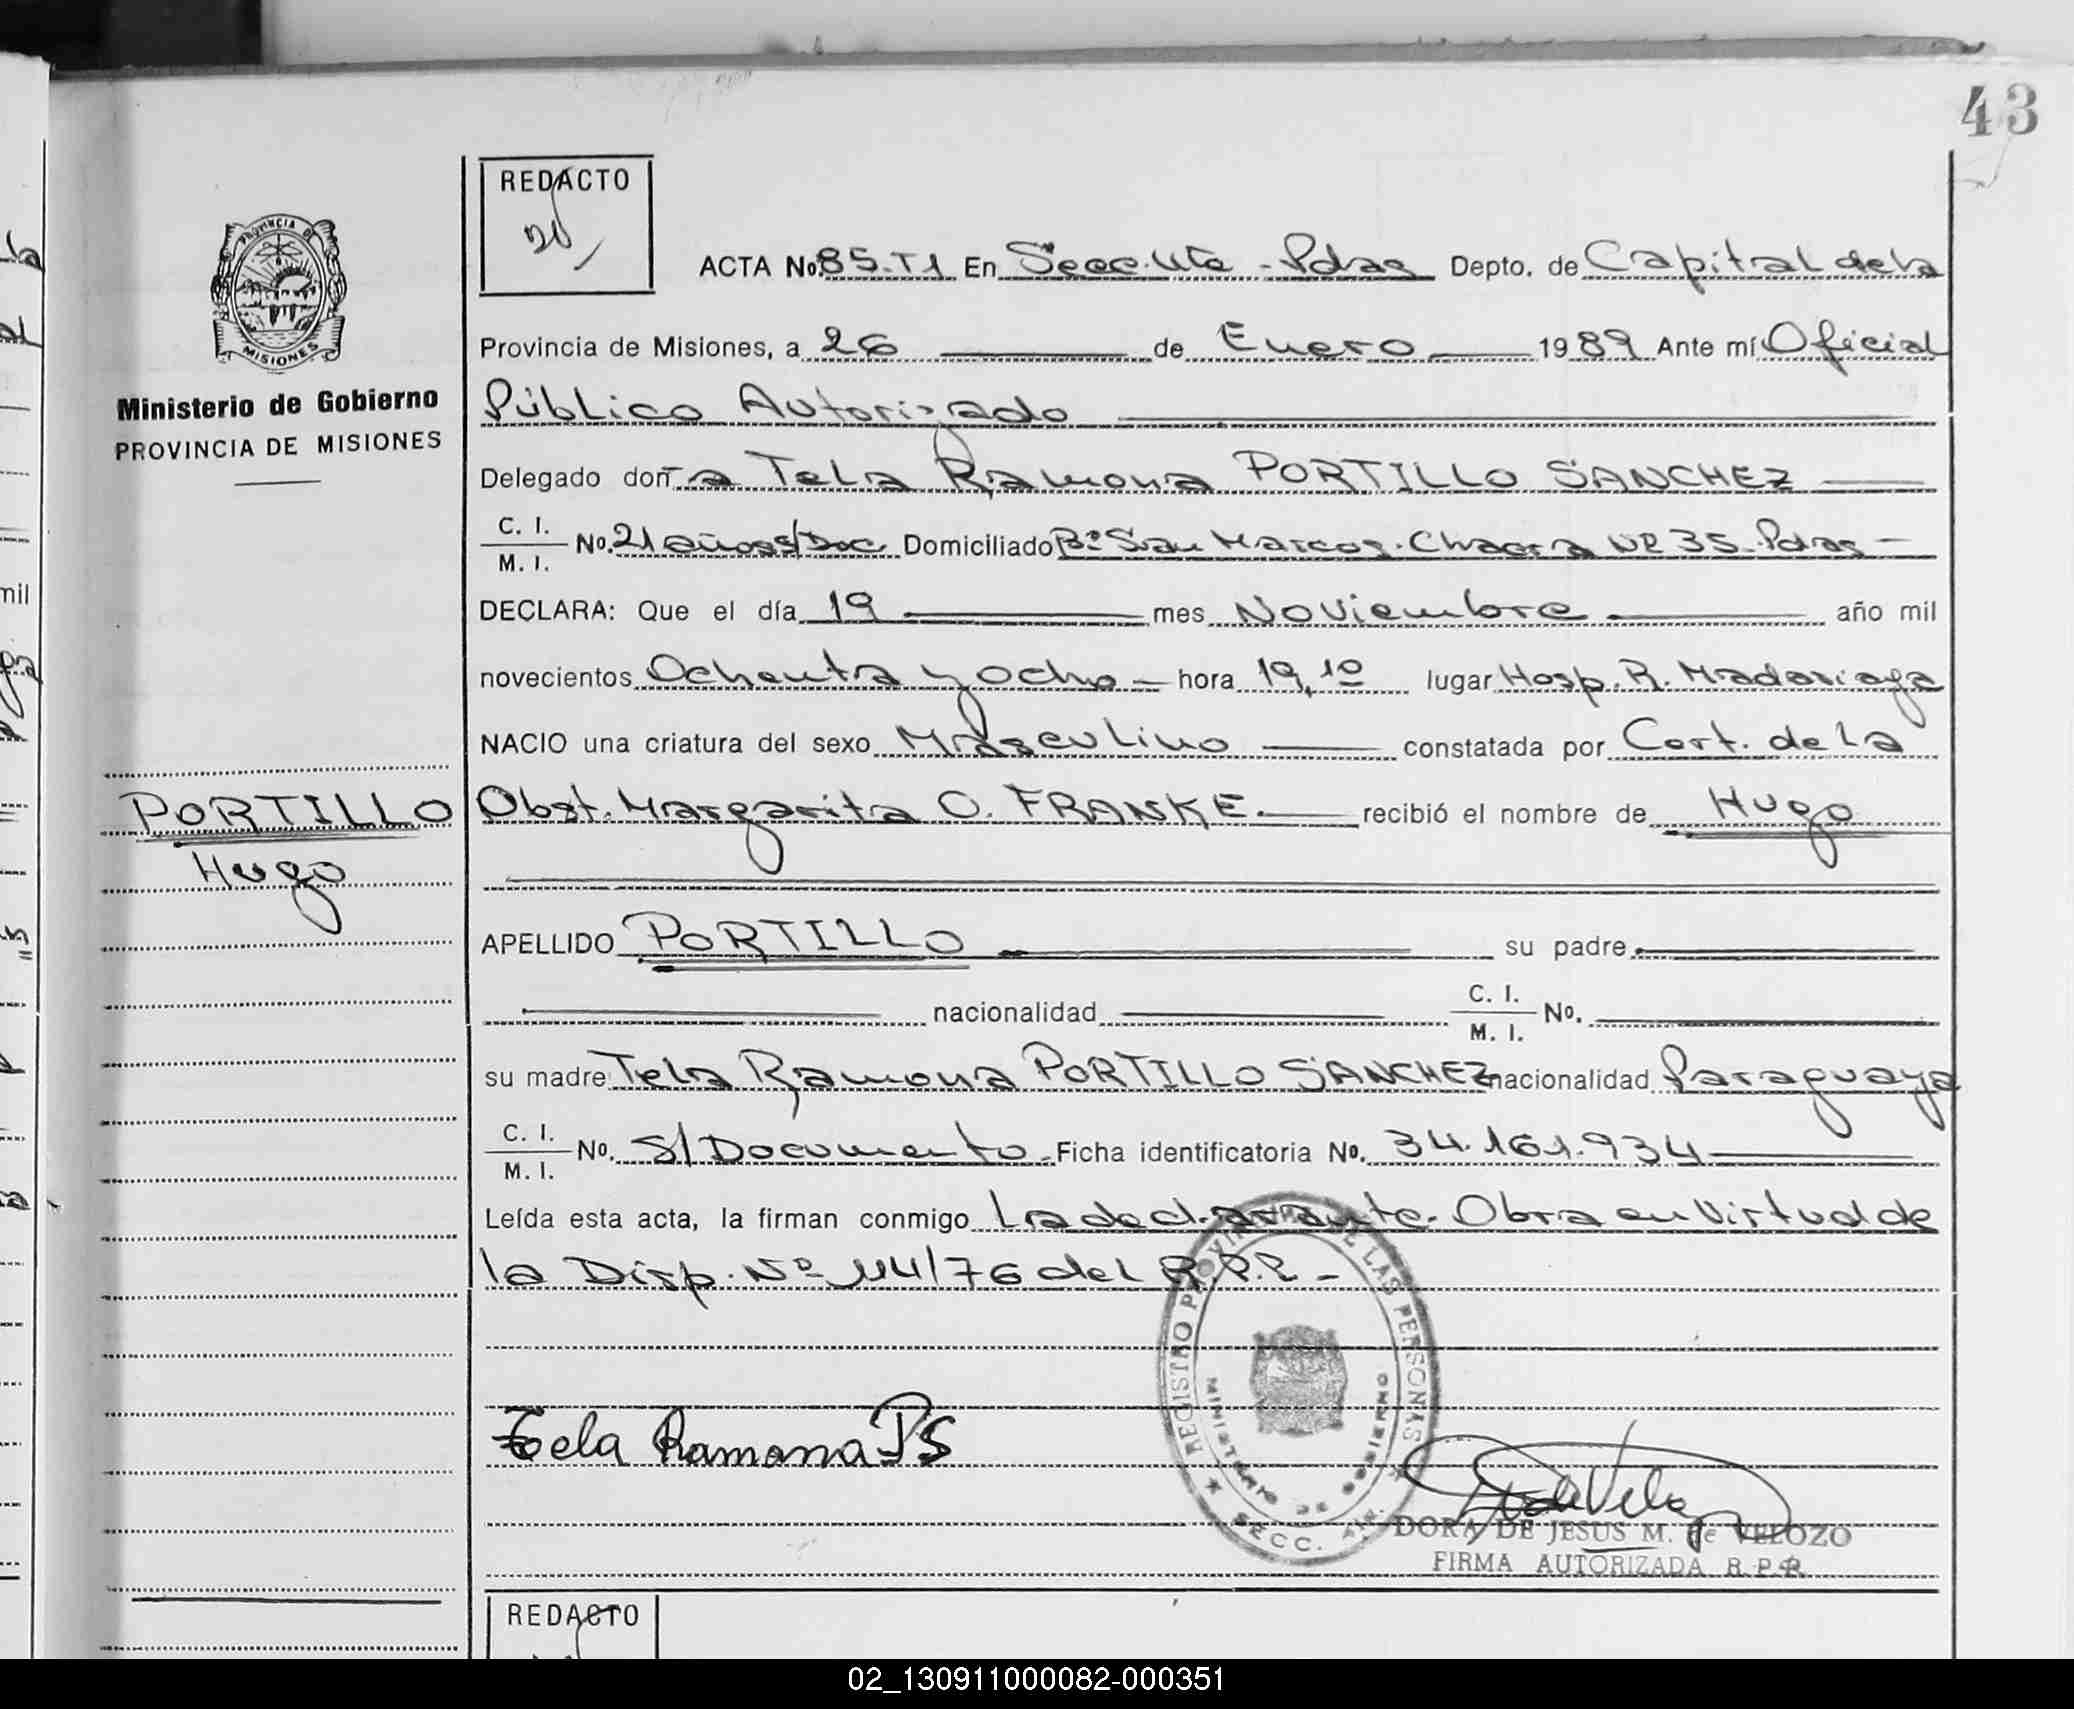 43
REDACTO
PROVINCIA DE
MISIONES
Ministerio de Gobierno
PROVINCIA DE MISIONES
ACTA No. 85-T1 En Secc. 4ta - Pdas Depto. de Capital de la
Provincia de Misiones, a 26 de Enero 1989 Ante mí Oficial
Público Autorizado
Delegado doña Tela Ramona PORTILLO SANCHEZ
C. I. / M. I. No. 21 años s/Doc. Domiciliado Bº San Marcos. Chacra Nº 35. Pdas
DECLARA: Que el día 19 mes Noviembre año mil
novecientos Ochenta y ocho hora 19,10 lugar Hosp. R. Madariaga
NACIO una criatura del sexo Masculino constatada por Cert. de la
Obst. Margarita O. FRANKE. recibió el nombre de Hugo
PORTILLO
Hugo
APELLIDO PORTILLO su padre
nacionalidad C. I. / M. I. No.
su madre Tela Ramona PORTILLO SANCHEZ nacionalidad Paraguaya
C. I. / M. I. No. S/Documento. Ficha identificatoria No. 34.161.934
Leída esta acta, la firman conmigo La declarante. Obra en virtud de
la Disp. Nº 114/76 del R.P.P.
REGISTRO PROVINCIAL DE LAS PERSONAS
MINISTERIO DE GOBIERNO
SECC.
Tela Ramona PS
DORA DE JESUS M. de VELOZO
FIRMA AUTORIZADA R.P.P.
REDACTO
02_130911000082-000351